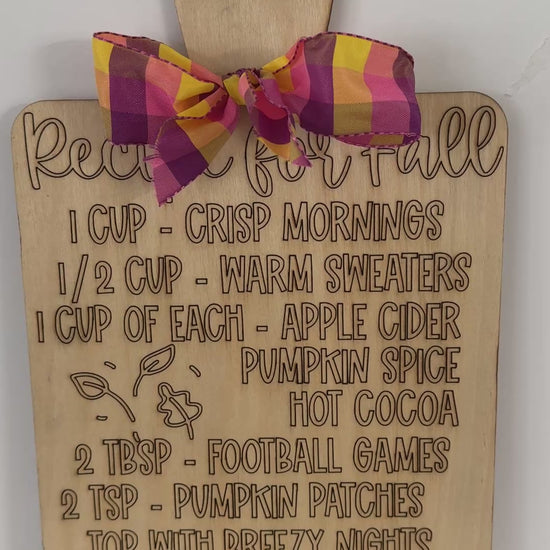 Recipe for Fall
1 CUP - CRISP MORNINGS
1/2 CUP - WARM SWEATERS
1 CUP OF EACH - APPLE CIDER
PUMPKIN SPICE
HOT COCOA
2 TB'SP - FOOTBALL GAMES
2 TSP - PUMPKIN PATCHES
TOP WITH BREEZY NIGHTS